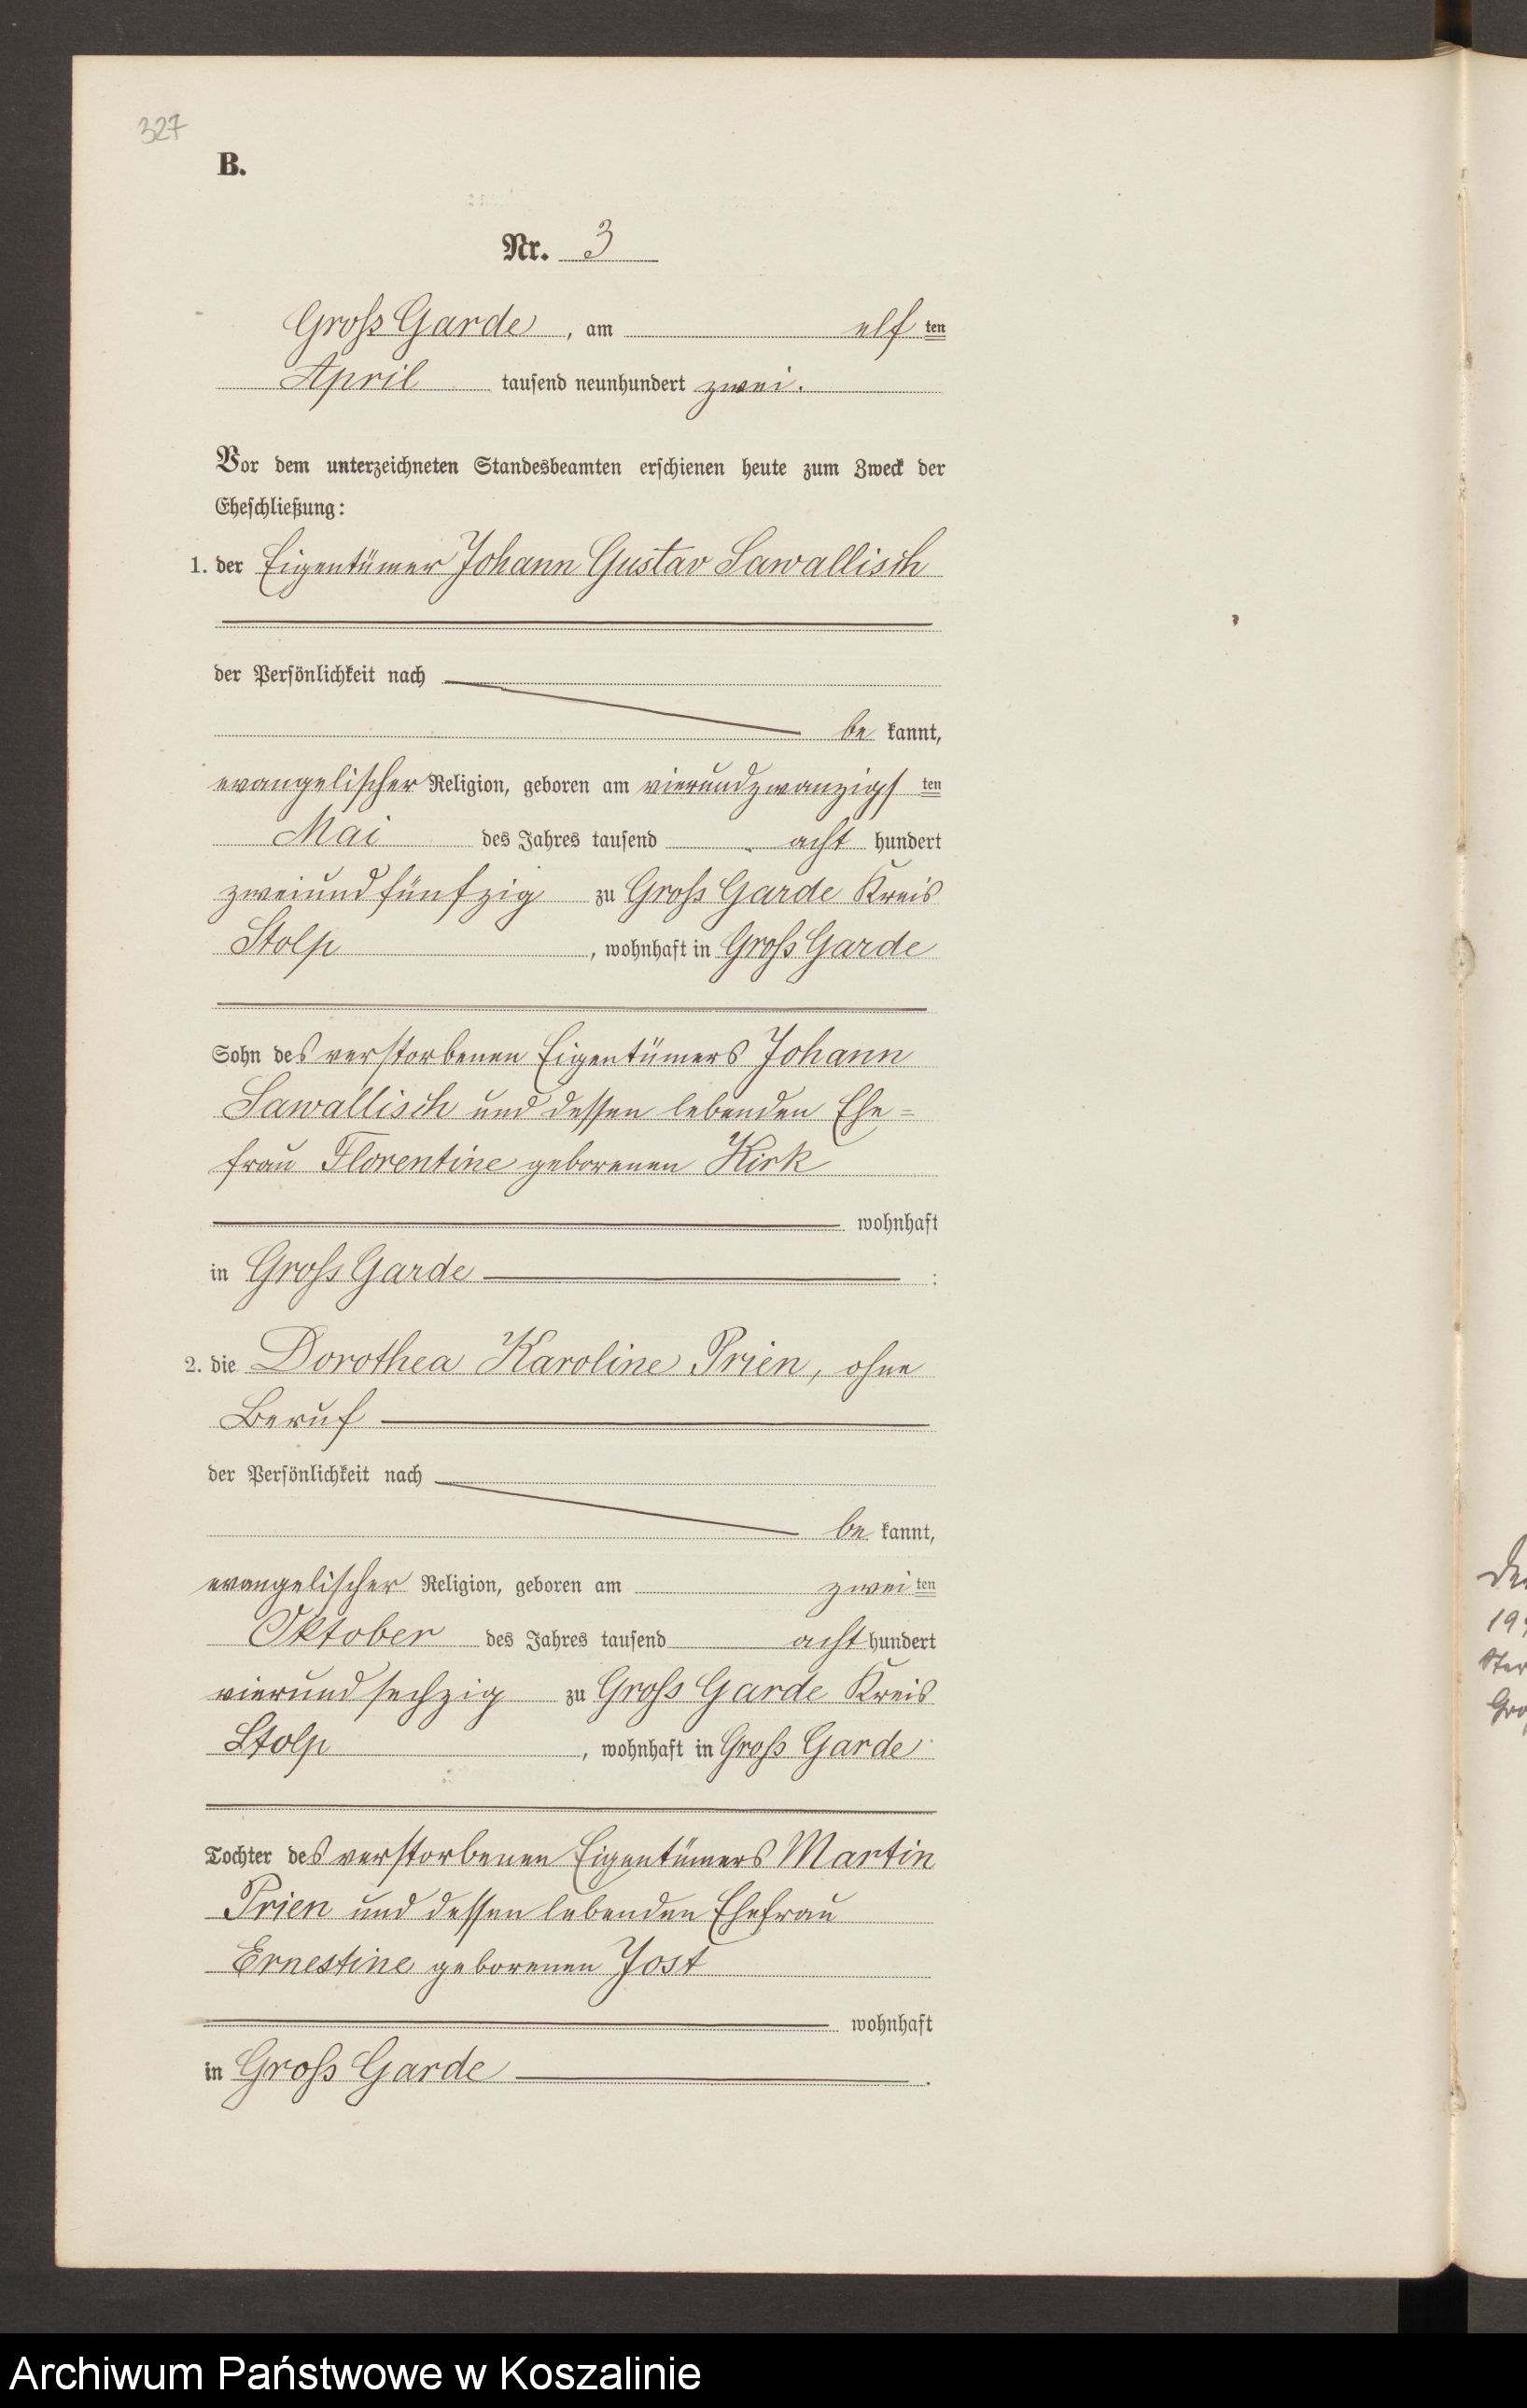 327
B.
Nr. 3
Groß Garde, am elf ten
April tausend neunhundert zwei.
Vor dem unterzeichneten Standesbeamten erschienen heute zum Zweck der
Eheschließung:
1. der Eigentümer Johann Gustav Sawallisch
der Persönlichkeit nach
be kannt,
evangelischer Religion, geboren am vierundzwanzigs ten
Mai des Jahres tausend acht hundert
zweiundfünfzig zu Groß Garde Kreis
Stolp, wohnhaft in Groß Garde
Sohn des verstorbenen Eigentümers Johann
Sawallisch und dessen lebenden Ehe=
frau Florentine geborenen Kirk
wohnhaft
in Groß Garde :
2. die Dorothea Karoline Prien, ohne
Beruf
der Persönlichkeit nach
be kannt,
evangelischer Religion, geboren am zwei ten
Oktober des Jahres tausend acht hundert
vierundsechzig zu Groß Garde Kreis
Stolp, wohnhaft in Groß Garde
Tochter des verstorbenen Eigentümers Martin
Prien und dessen lebenden Ehefrau
Ernestine geborenen Jost
wohnhaft
in Groß Garde .
Archiwum Państwowe w Koszalinie